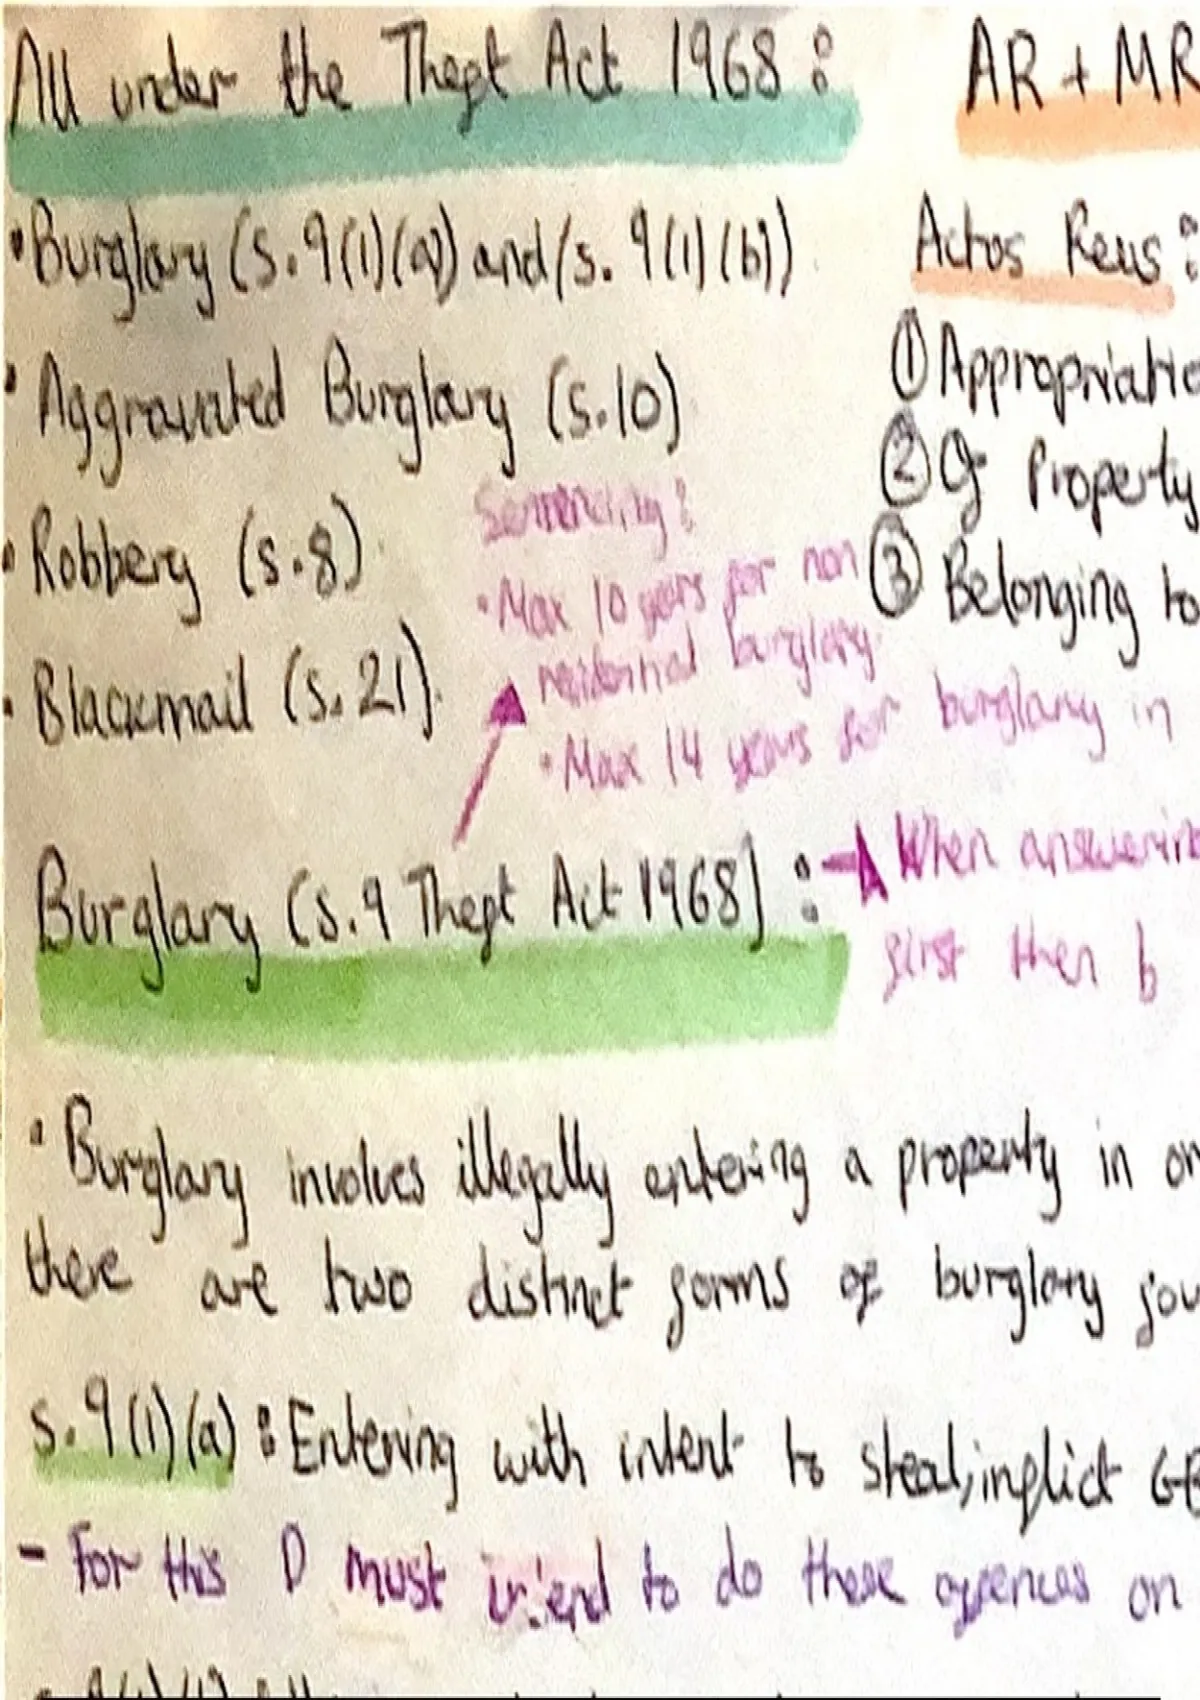 All under the Theft Act 1968:
• Burglary (s.9(1)(a)) and (s.9(1)(b))
• Aggravated Burglary (s.10)
• Robbery (s.8).
• Blackmail (s.21).
Sentencing:
• Max 10 years for non
residential burglary.
• Max 14 years for burglary in
AR + MR
Actos Reus:
① Appropriatio
② Of Property
③ Belonging to
Burglary (s.9 Theft Act 1968):
When answering
first then b
• Burglary involves illegally entering a property in or
there are two distinct forms of burglary fou
s.9(1)(a): Entering with intent to steal, inflict GB
- For this D must intend to do these offences on